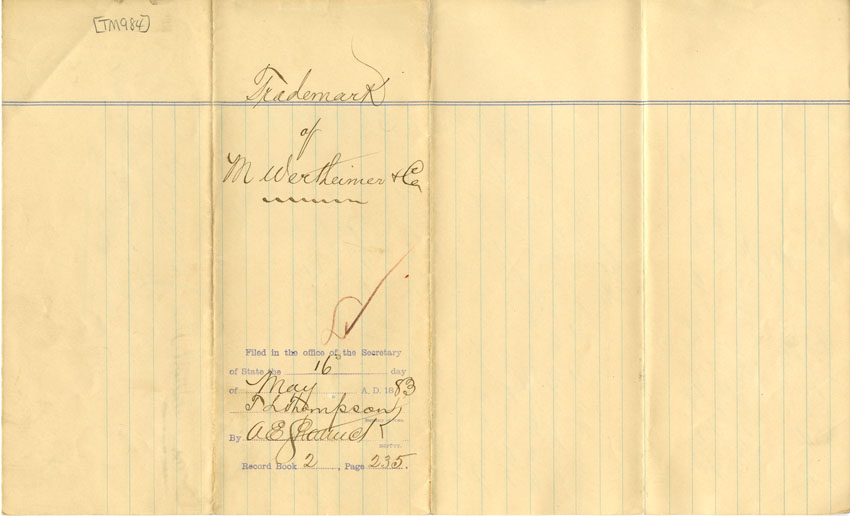 [TM984]
Trademark
of
M Wertheimer & Co
Filed in the office of the Secretary
of State the 16 day
of May A. D. 1883
T L Thompson
By A E
Record Book 2, Page 235.